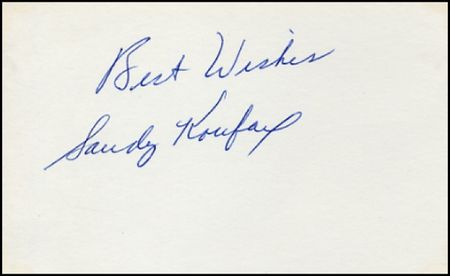 Best Wishes
Sandy Koufax